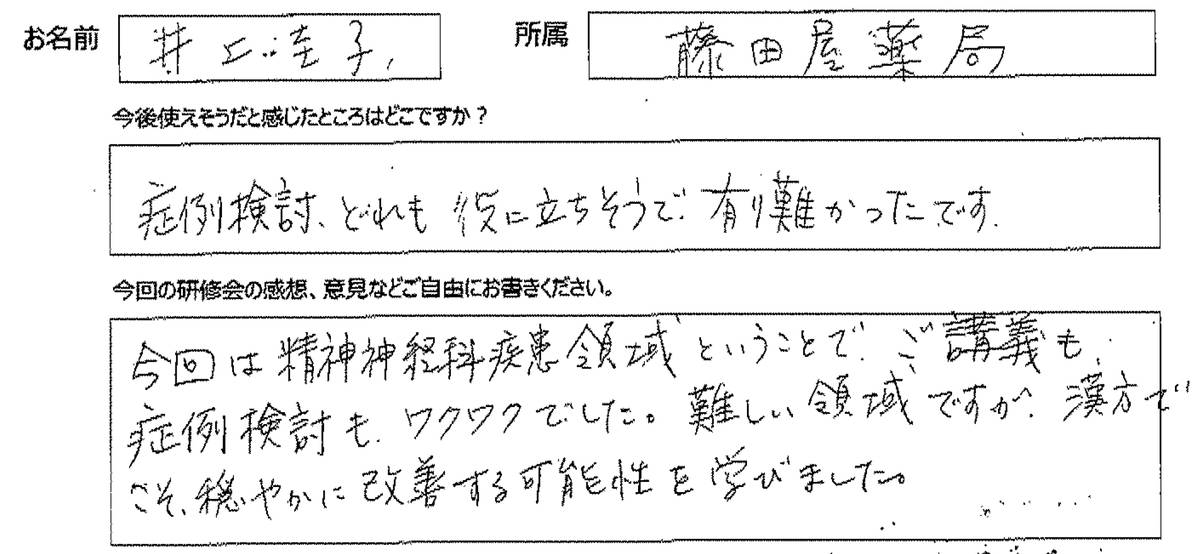 お名前 井上 子 所属 藤田屋薬局
今後使えそうだと感じたところはどこですか？
症例検討、どれも役に立ちそうで、有り難かったです。
今回の研修会の感想、意見などご自由にお書きください。
今回は精神神経科疾患領域ということで、ご講義も、
症例検討も、ワクワクでした。難しい領域ですが、漢方で
こそ、穏やかに改善する可能性を学びました。